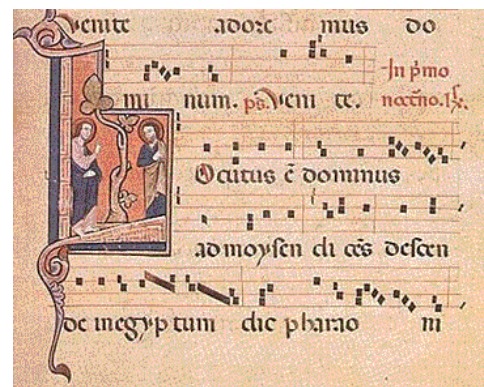 venite adore mus do
mi num. ps. Veni te. In p̄mo
noct̄no. ℟.
Ocutus ē dominus
ad moysen di cēs descen
de in egyp tum dic pharao ni